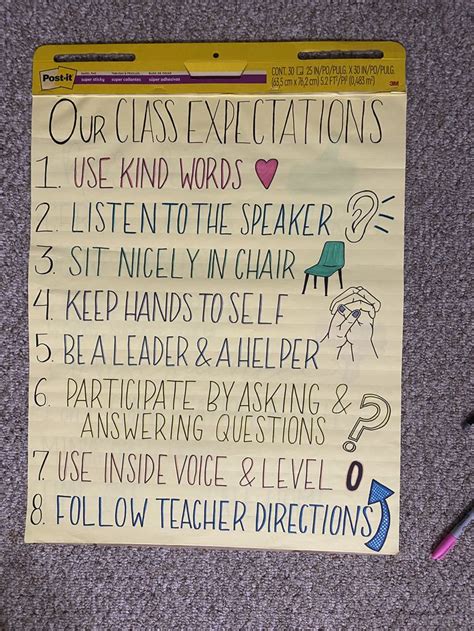 Post-it
super sticky
super collantes
super adhesivas
CONT. 30 25 IN/PO/PULG. X 30 IN/PO/PULG.
(63,5 cm x 76,2 cm) 5.2 FT²/Pi² (0,483 m²)
3M
OUR CLASS EXPECTATIONS
1. USE KIND WORDS
2. LISTEN TO THE SPEAKER
3. SIT NICELY IN CHAIR
4. KEEP HANDS TO SELF
5. BE A LEADER & A HELPER
6. PARTICIPATE BY ASKING &
ANSWERING QUESTIONS
?
7. USE INSIDE VOICE & LEVEL 0
8. FOLLOW TEACHER DIRECTIONS